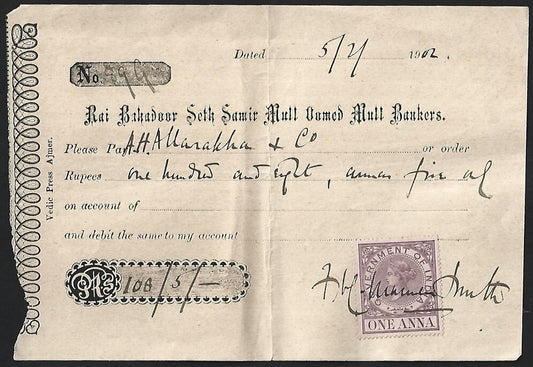 Dated 5/2/ 1902.
No.
Rai Bahadoor Seth Samir Mull Oomed Mull Bankers.
Please Pay A.H. Allarakhan & Co or order
Rupees one hundred and eight, annas five only
on account of
and debit the same to my account
Rs 108/5/—
GOVERNMENT OF INDIA
ONE ANNA
Vedic Press Ajmer.